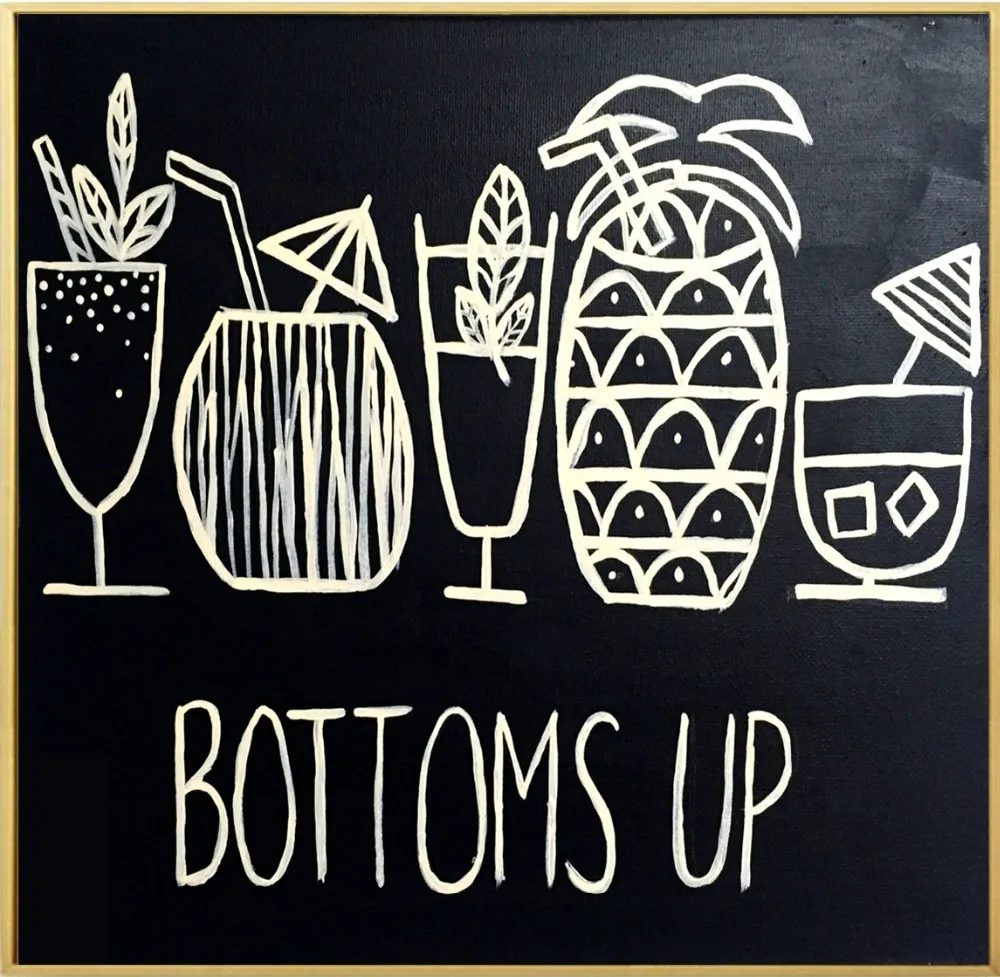 BOTTOMS UP